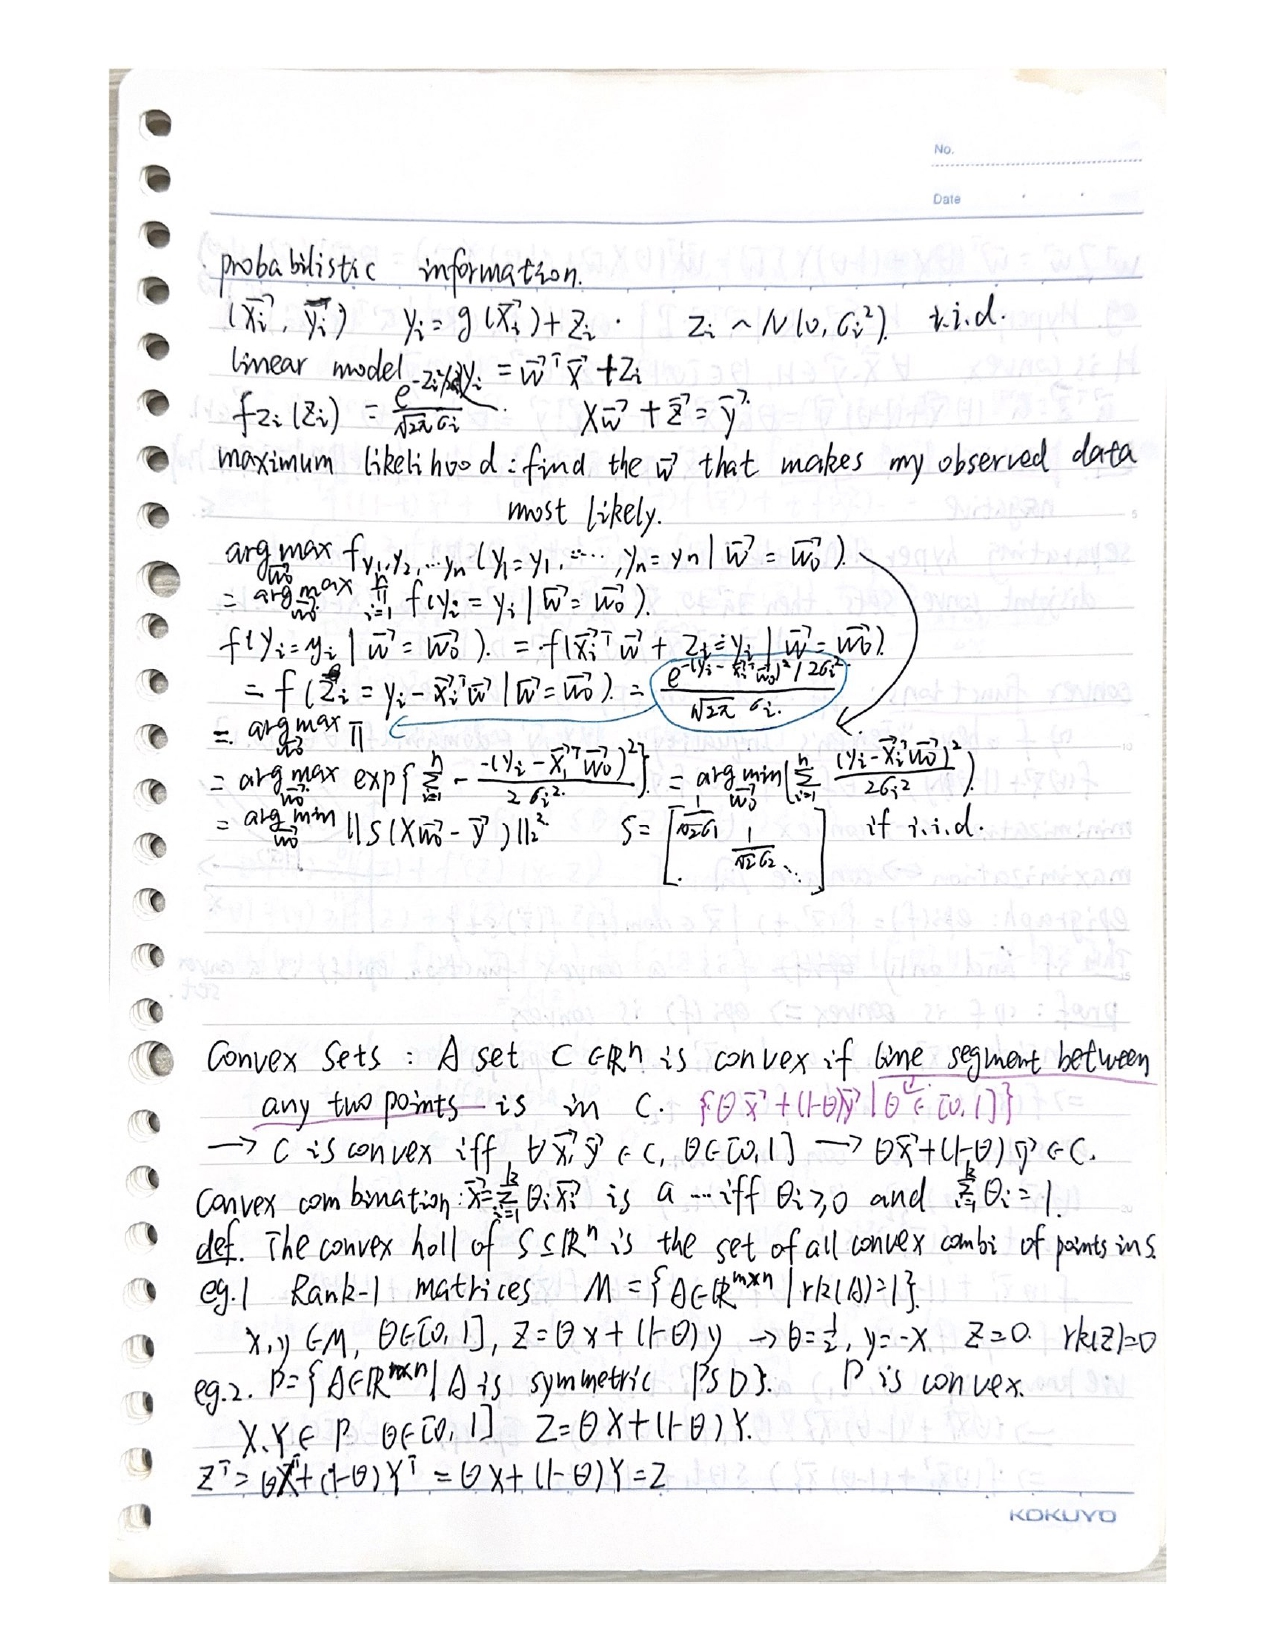 No.
Date
probabilistic information.
(x⃗i, y⃗i) yi = g(x⃗i) + Zi. Zi ~ N(0, σi²). i.i.d.
linear model yi = w⃗ᵀx⃗ + Zi
fZi(Zi) = e^-Zi²/ / √2π σi. Xw⃗ + z⃗ = y⃗.
maximum likelihood : find the w⃗ that makes my observed data
most likely.
arg max_w⃗0 f y1,y2,...yn (y1=y1, ..., yn=yn | w⃗ = w⃗0).
= arg max_w⃗0 Π_{i=1}^n f(yi = yi | w⃗ = w⃗0).
f(yi=yi | w⃗ = w⃗0). = f(x⃗iᵀw⃗ + Zi = yi | w⃗ = w⃗0)
= f(Zi = yi - x⃗iᵀw⃗ | w⃗ = w⃗0). = e^-(yi - x⃗iᵀw⃗0)²/2σi² / √2π σi.
= arg max_w⃗0 Π
= arg max_w⃗0 exp{Σ_{i=1}^n - -(yi - x⃗iᵀw⃗0)² / 2σi²} = arg min_w⃗0 (Σ_{i=1}^n (yi - x⃗iᵀw⃗0)² / 2σi²)
= arg min_w⃗0 ||S(Xw⃗0 - y⃗)||₂² S = [1/√2σ1 1/√2σ2 ⋱] if i.i.d.
Convex Sets : A set C ∈ ℝⁿ is convex if line segment between
any two points is in C. {θx⃗ + (1-θ)y⃗ | θ ∈ [0,1]}
→ C is convex iff ∀x⃗,y⃗ ∈ C, θ∈[0,1] → θx⃗ + (1-θ)y⃗ ∈ C.
Convex combination : x⃗ = Σ_{i=1}^k θi x⃗i is a ... iff θi ≥ 0 and Σ_{i=1}^k θi = 1.
def. The convex holl of S ⊆ ℝⁿ is the set of all convex combi of points in S.
eg.1 Rank-1 matrices M = {A∈ℝ^{m×n} | rk(A)=1}.
x,y ∈ M, θ∈[0,1], Z = θx + (1-θ)y → θ=½, y=-x Z=0. rk(Z)=0
eg.2. P = {A∈ℝ^{n×n} | A is symmetric PSD}. P is convex.
X.Y ∈ P θ∈[0,1] Z = θX + (1-θ)Y.
Zᵀ = θXᵀ + (1-θ)Yᵀ = θX + (1-θ)Y = Z
KOKUYO